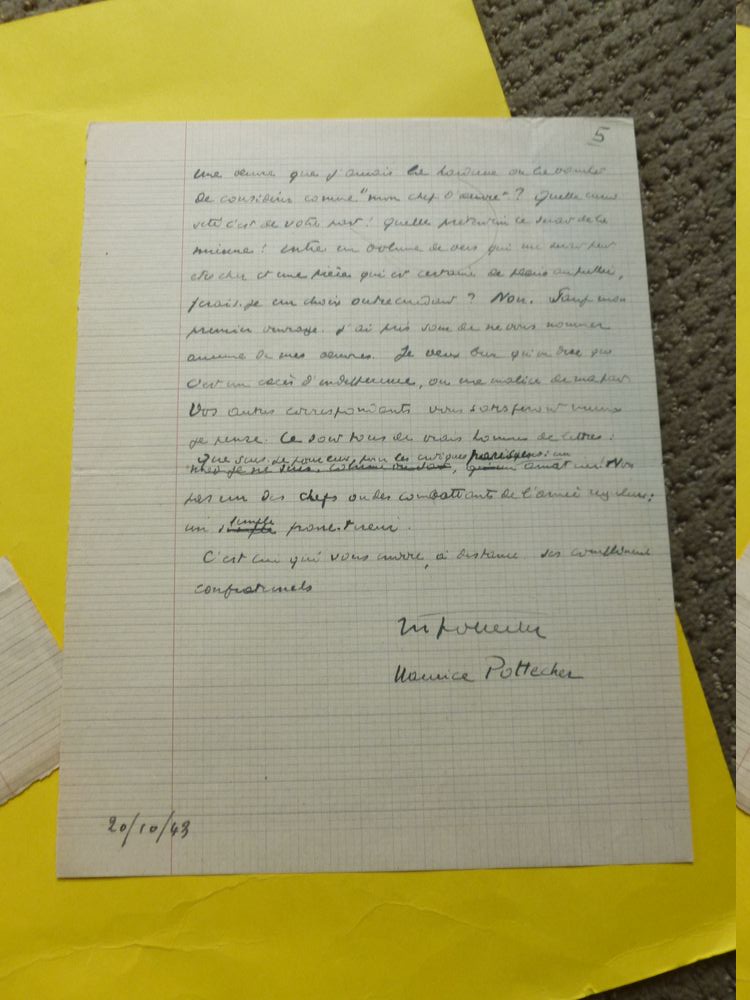 5
une œuvre que j'aurais la ou la vanité
de considérer comme "mon chef d'œuvre" ? Quelle
c'est de votre part ! quelle prétention ce serait de la
mienne ! entre un volume de vers qui me serait
cher et une pièce qui est certaine de
ferais-je un choix outrecuidant ? Non. Sauf mon
premier ouvrage. j'ai pris soin de ne vous nommer
aucune de mes œuvres. Je veux bien qu'on dise que
c'est un excès d'indifférence, ou une malice de ma part
Vos autres correspondants vous satisferont mieux
je pense. Ce sont tous de vrais hommes de lettres :
Que suis-je pour eux, pour les critiques parisiens : un
amateur ! Non
pas un des chefs ou des combattants de l'armée régulière ;
un simple franc-tireur.
C'est lui qui vous envoie, à distance ses compliments
confraternels
MPottecher
Maurice Pottecher
20/10/43